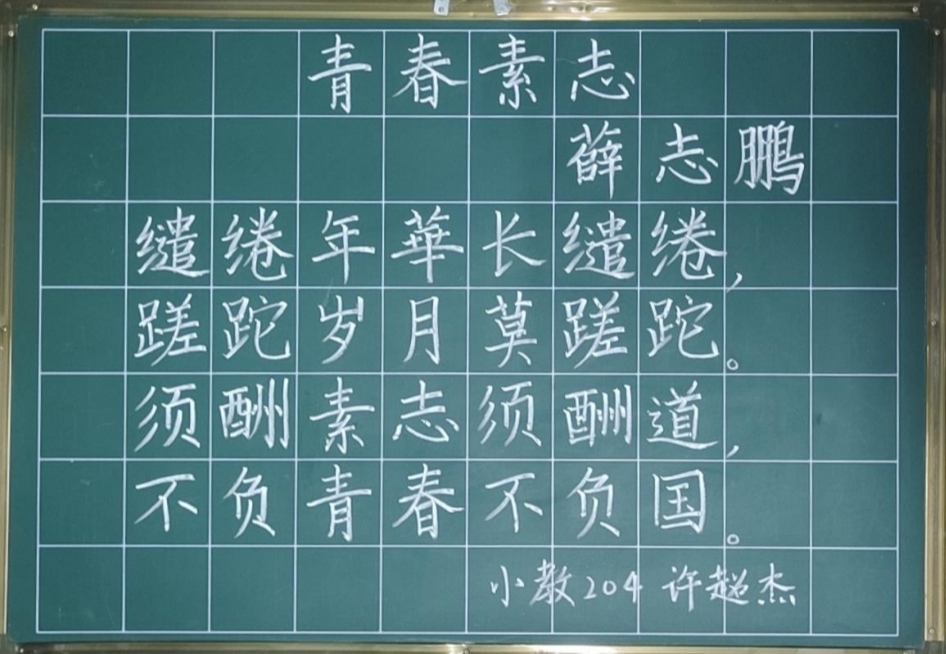 青春素志
薛志鹏
缱绻年華长缱绻,
蹉跎岁月莫蹉跎。
须酬素志须酬道,
不负青春不负国。
小教204 许超杰